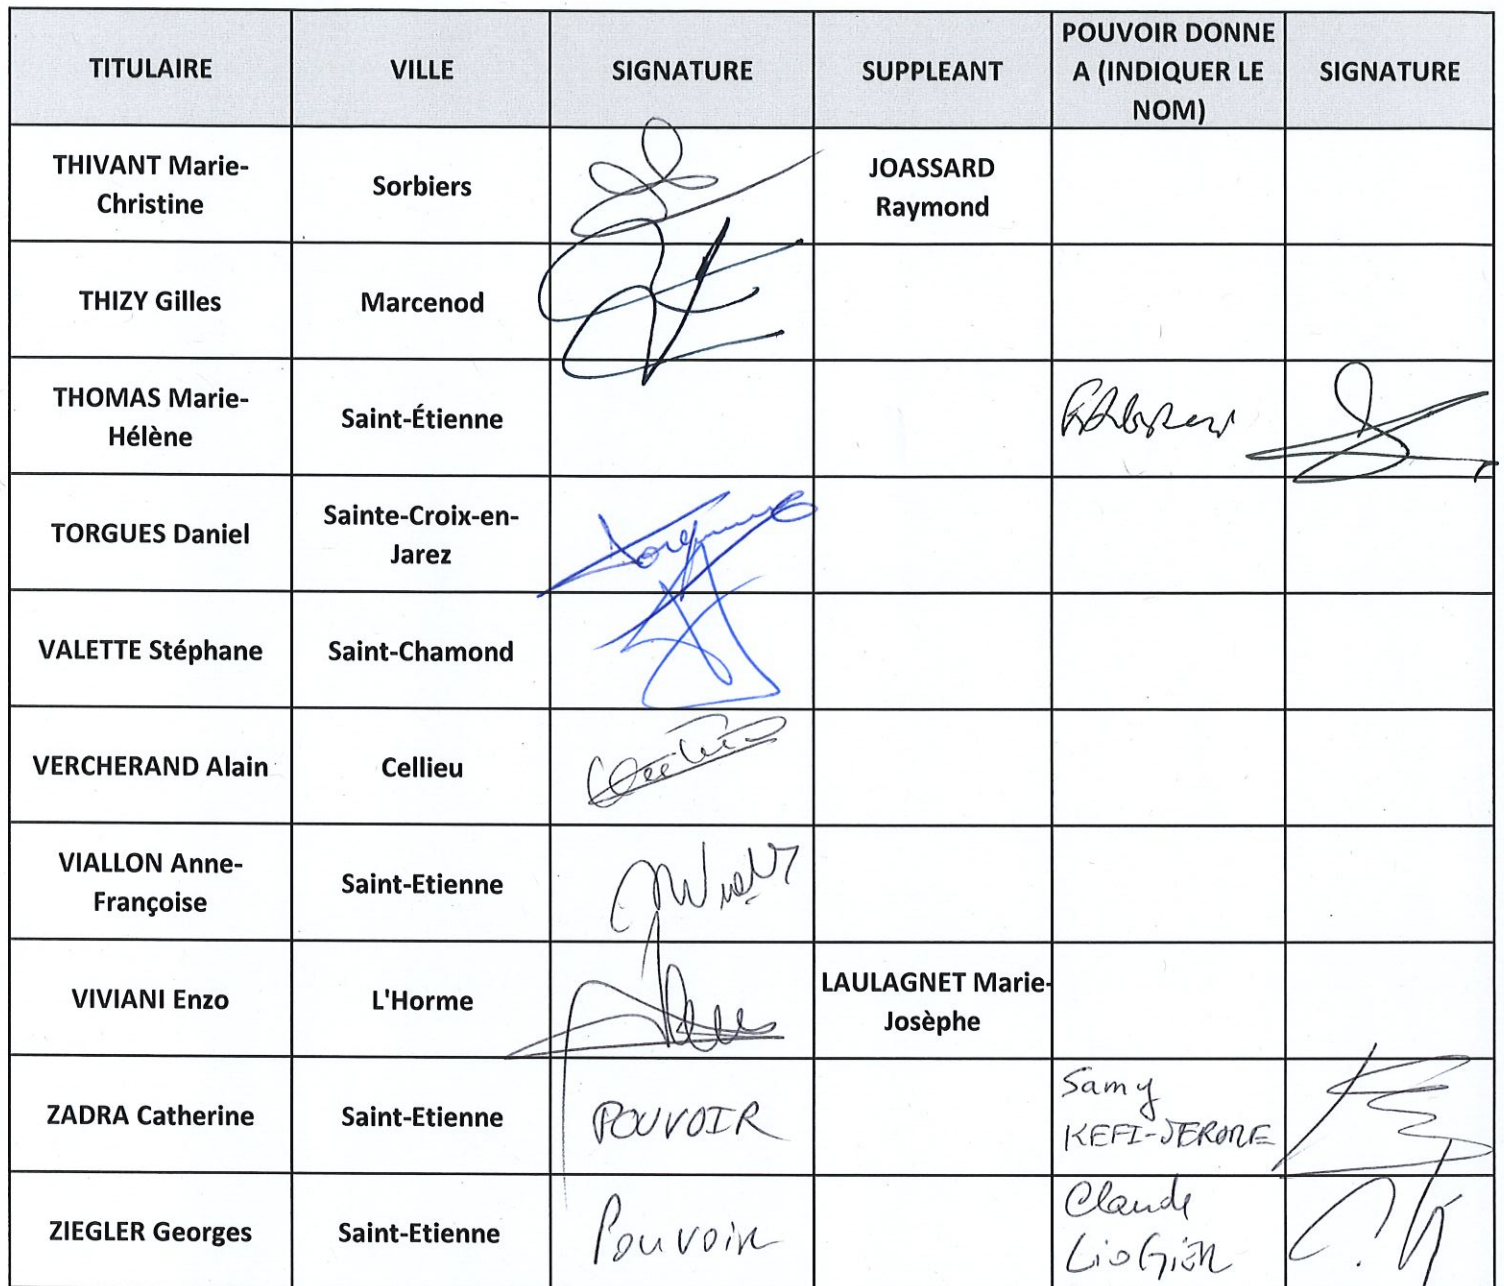 TITULAIRE
VILLE
SIGNATURE
SUPPLEANT
POUVOIR DONNE
A (INDIQUER LE
NOM)
SIGNATURE
THIVANT Marie-
Christine
Sorbiers
JOASSARD
Raymond
THIZY Gilles
Marcenod
THOMAS Marie-
Hélène
Saint-Étienne
TORGUES Daniel
Sainte-Croix-en-
Jarez
VALETTE Stéphane
Saint-Chamond
VERCHERAND Alain
Cellieu
VIALLON Anne-
Françoise
Saint-Etienne
VIVIANI Enzo
L'Horme
LAULAGNET Marie-
Josèphe
ZADRA Catherine
Saint-Etienne
POUVOIR
Samy
KEFI-JEROME
ZIEGLER Georges
Saint-Etienne
Pouvoir
Claude
LioGiER